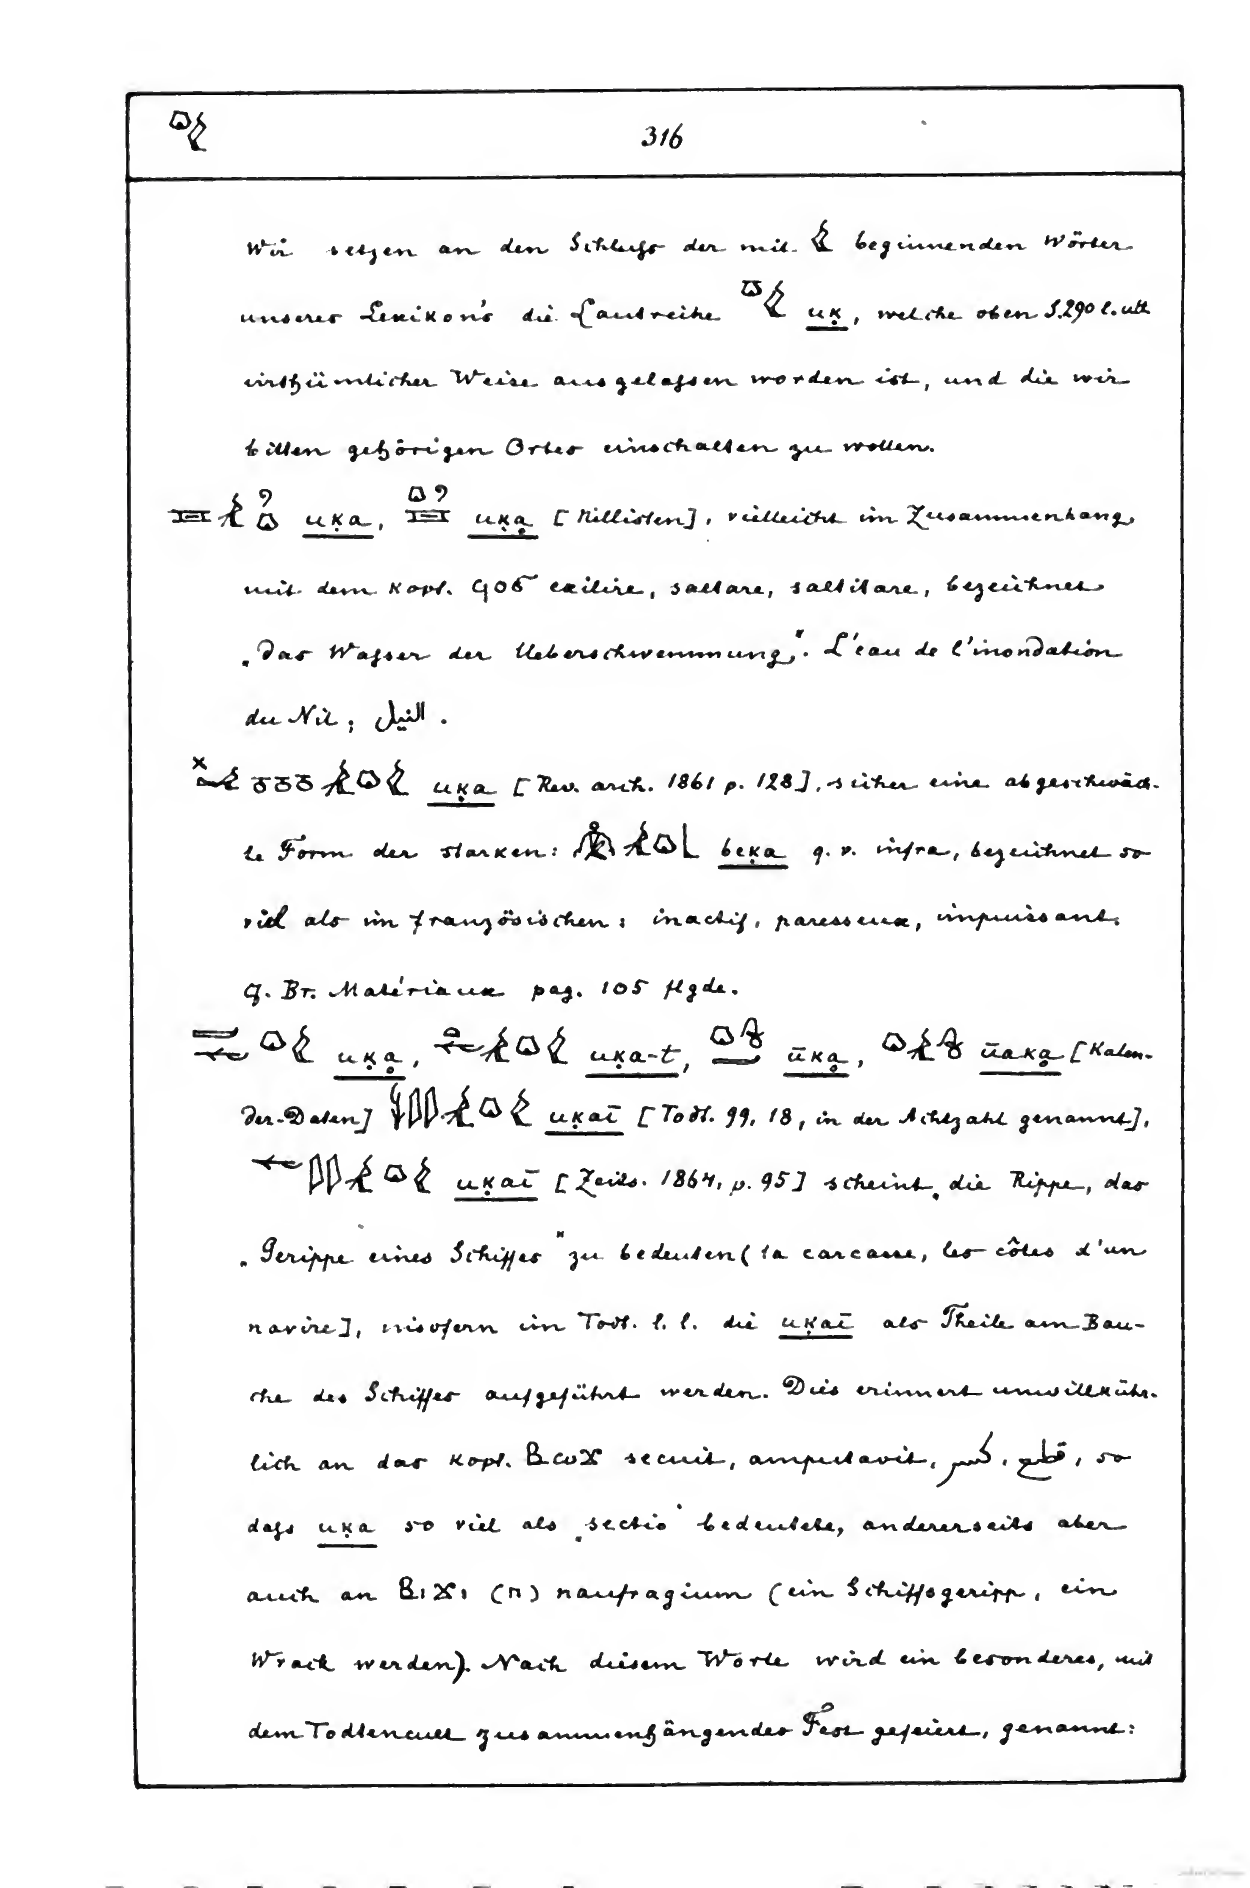 316
Wir setzen an den Schluſs der mit beginnenden Wörter
unseres Lexikon's die Lautreihe uḳ, welche oben S. 290 l. ult.
irrthümlicher Weise ausgelaſsen worden ist, und die wir
bitten gehörigen Ortes einschalten zu wollen.
uḳa, uḳạ [Nillisten], vielleicht im Zusammenhang
mit dem kopt. ϥⲟϭ exilire, saltare, saltitare, bezeichnet
„das Waſser der Ueberschwemmung". L'eau de l'inondation
du Nil, النيل.
uḳa [Rev. arch. 1861 p. 128], sicher eine abgeschwäch-
te Form der starken: beḳa q. v. infra, bezeichnet so
viel als im französischen: inactif, paresseux, impuissant.
Cf. Br. Matériaux pag. 105 flgde.
uḳạ, uḳa-t, ūḳạ, ūaḳạ [Kalen-
der-Daten] uḳaī [Todt. 99, 18, in der Achtzahl genannt],
uḳaī [Zeits. 1864, p. 95] scheint „die Rippe, das
„Gerippe eines Schiffes" zu bedeuten (la carcasse, les côtes d'un
navire], insofern im Todt. l. l. die uḳaī als Theile am Bau-
che des Schiffes aufgeführt werden. Dies erinnert unwillkühr-
lich an das kopt. ⲃⲱϫ secuit, amputavit, كسر, قطع, so
daſs uḳa so viel als „sectio" bedeutete, andererseits aber
auch an ⲃⲓϫⲓ (ⲡ) naufragium (ein Schiffsgeripp, ein
Wrack werden). Nach diesem Worte wird ein besonderes, mit
dem Todtencult zusammenhängendes Fest gefeiert, genannt: